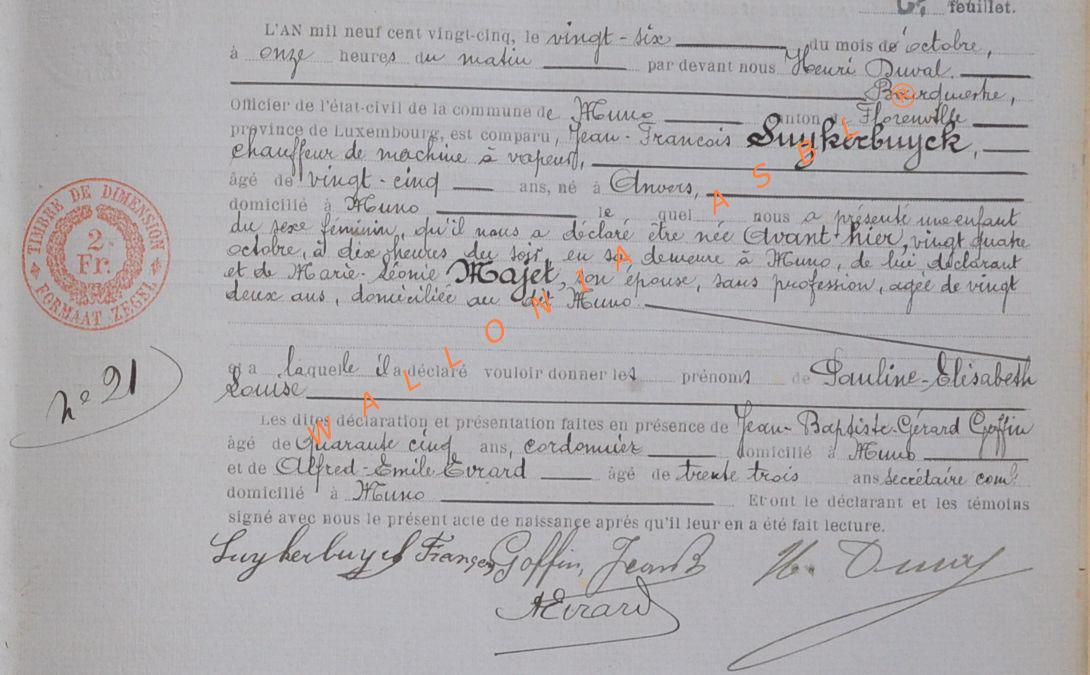 feuillet.
L'AN mil neuf cent vingt-cinq, le vingt-six du mois de octobre,
à onze heures du matin par devant nous Henri Duval.
Bourgmestre,
Officier de l'état-civil de la commune de Muno canton de Florenville
province de Luxembourg, est comparu, Jean-Francois Suykerbuyck,
chauffeur de machine à vapeur,
âgé de vingt-cinq ans, né à Anvers,
domicilié à Muno le quel nous a présenté une enfant
du sexe féminin, qu'il nous a déclaré être née Avant-hier, vingt quatre
octobre, à dix heures du soir, en sa demeure à Muno, de lui déclarant
et de Marie-Léonie Majet, son épouse, sans profession, agée de vingt
deux ans, domiciliée au dit Muno.
et a laquelle il a déclaré vouloir donner les prénoms de Pauline-Elisabeth
Louise
Les dites déclaration et présentation faites en présence de Jean-Baptiste-Gérard Goffin
âgé de Quarante cinq ans, cordonnier domicilié à Muno
et de Alfred-Emile Evrard âgé de trente trois ans secrétaire com<sup>l</sup>
domicilié à Muno Et ont le déclarant et les témoins
signé avec nous le présent acte de naissance après qu'il leur en a été fait lecture.
Suykerbuyck François Goffin, Jean B H. Duval
AEvrard
n° 21
TIMBRE DE DIMENSION
2
Fr.
FORMAAT ZEGEL
WALLONIA ASBL ®